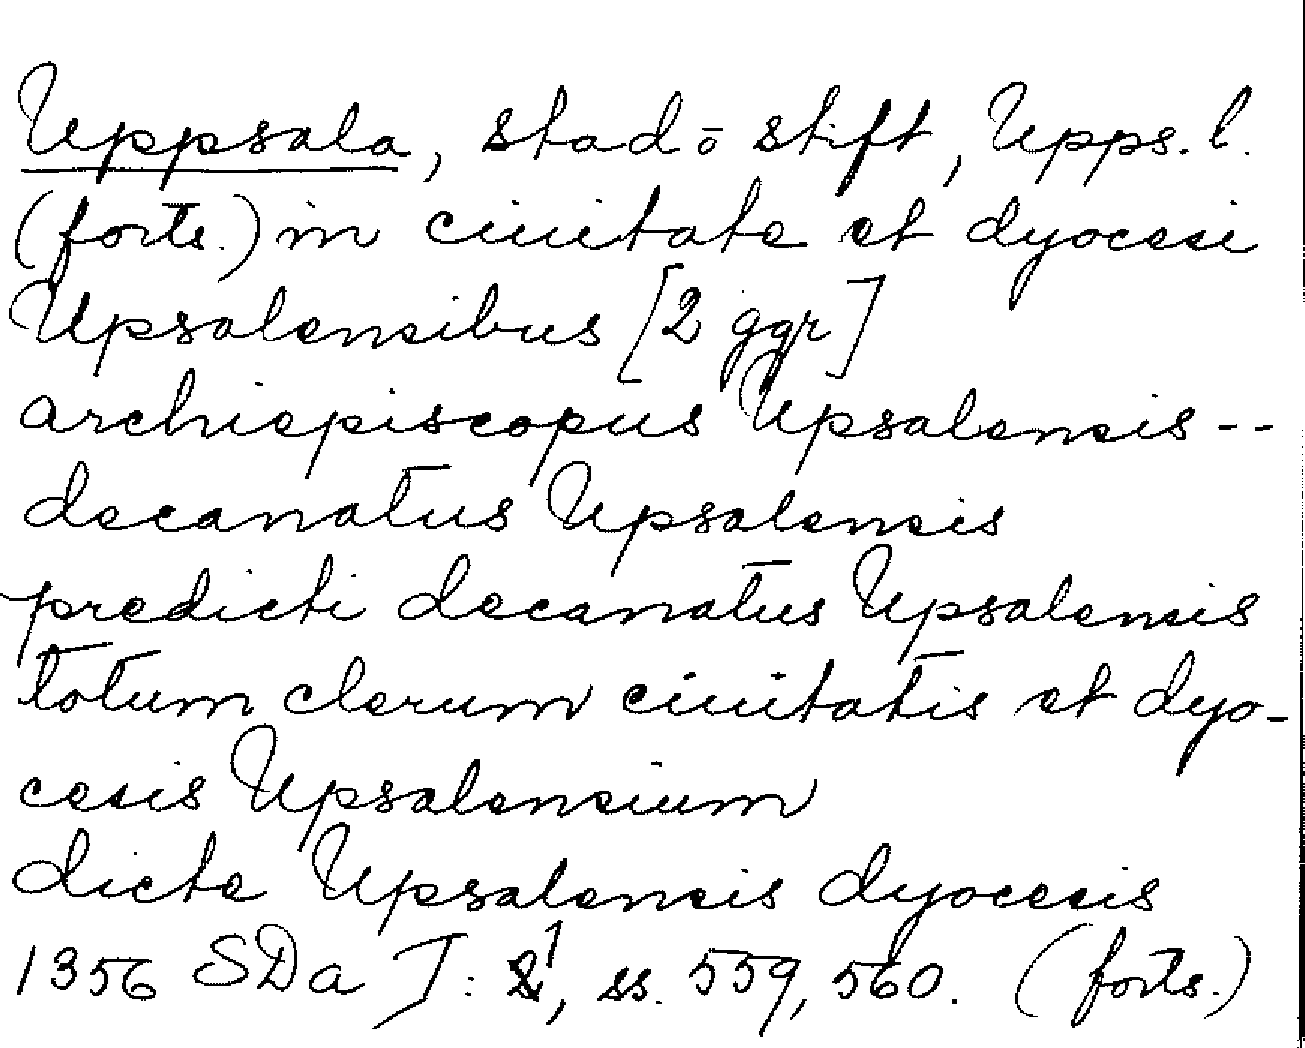 Uppsala, stad ō stift, Upps. l.
(forts.) in ciuitate et dyocesi
Upsalensibus [2 ggr]
archiepiscopus Upsalensis --
decanatus Upsalensis
predicti decanatus Upsalensis
totum clerum ciuitatis et dyo-
cesis Upsalensium
dicte Upsalensis dyocesis
1356 SDa I: 1, ss. 559, 560. (forts.)